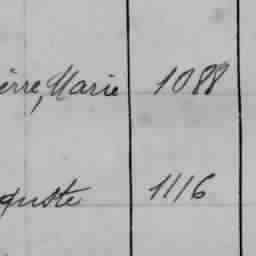 ierre, Marie 1088
guste 1116